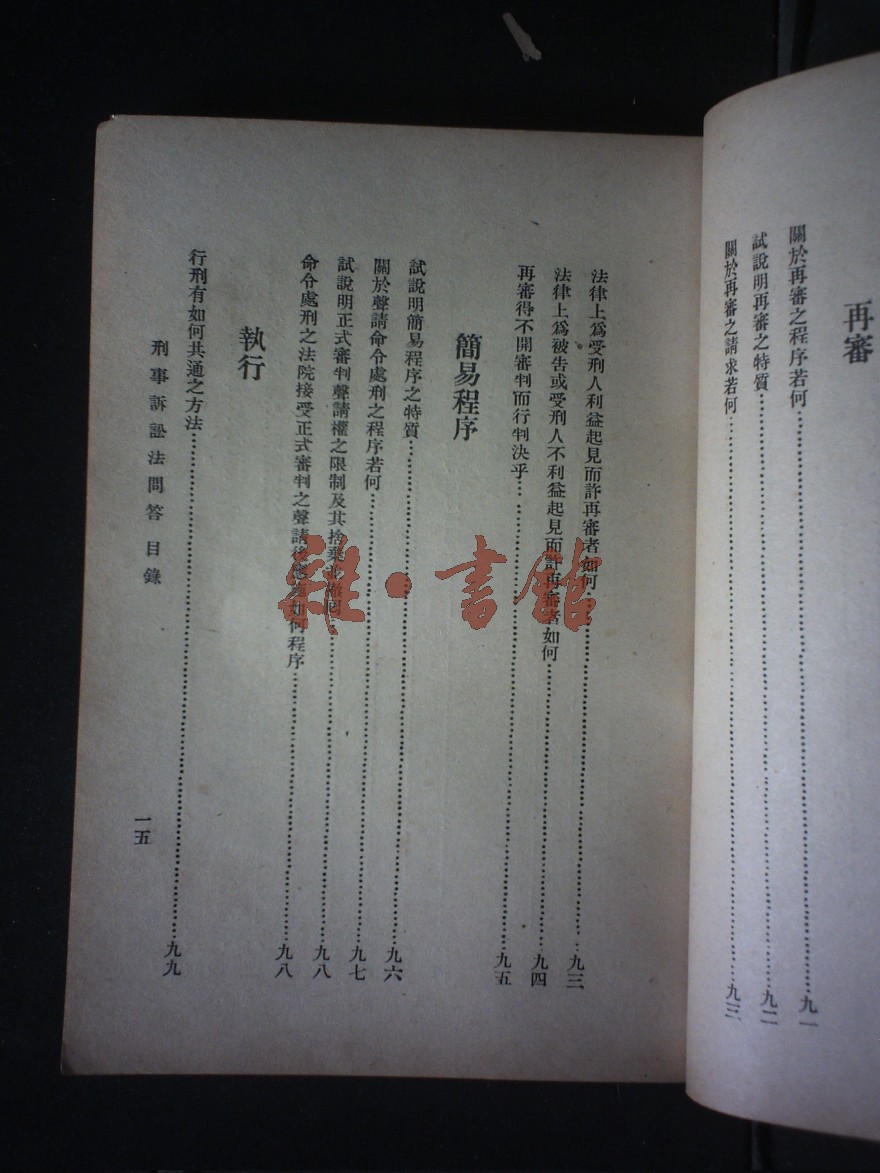 再審
關於再審之程序若何……九一
試說明再審之特質……九二
關於再審之請求若何……九三
法律上爲受刑人利益起見而許再審者如何……九三
法律上爲被告或受刑人不利益起見而許再審者如何……九四
再審得不開審判而行判決乎……九五
簡易程序
試說明簡易程序之特質……九六
關於聲請命令處刑之程序若何……九七
試說明正式審判聲請權之限制及其捨棄……九八
命令處刑之法院接受正式審判之聲請後如何程序……九八
執行
行刑有如何共通之方法……九九
刑事訴訟法問答 目錄
一五
雜·書館